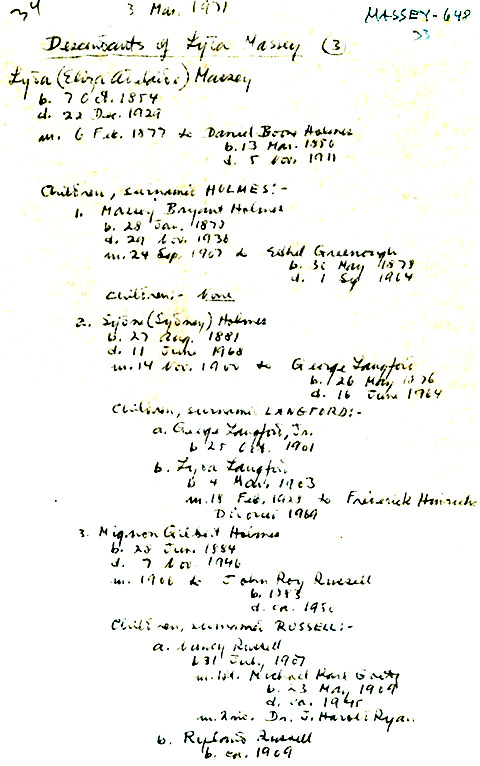 3 Mar. 1971
MASSEY-648
33
Descendants of Lyra Massey (3)
Lyra (Eliza) Massey
b. 7 Oct. 1854
d. 22 Dec. 1929
m. 6 Feb. 1877 to Daniel Boone Holmes
b. 13 Mar. 1850
d. 5 Nov. 1911
Children, surname HOLMES:-
1. Massey Bryant Holmes
b. 28 Jan.
d. 29 Nov. 1936
m. 24 Sep. 1907 to Ethel Greenough
b. May 1878
d. 1 Sep 1964
Children:- None
2. (Sydney) Holmes
b. 27 Aug. 1881
d. 11 June 1968
m. 14 Nov. 1900 to George Langford
b. 26 May 1876
d. 16 June 1964
Children, surname LANGFORD:-
a. George Langford, Jr.
b 25 Oct. 1901
b. Lyra Langford
b 4 Mar. 1903
m. 18 Feb. to Frederick Hinrichs
Divorced 1969
3. Mignon Gilbert Holmes
b. 28 Jun. 1884
d. 7 Nov. 1946
m. 1906 to John Roy Russell
b. 1883
d. ca.
Children, surname RUSSELL:-
a. Nancy Russell
b 31 July 1907
m. 1st. Michael
b. 23 May 1909
d. ca.
m. 2nd. Dr. J. Harold Ryan
b. Russell
b. ca. 1909